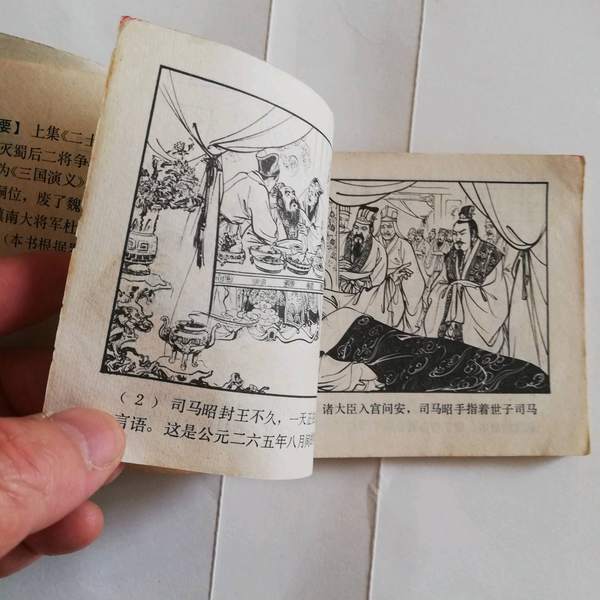 要】上集《二士
灭蜀后二将争
为《三国演义》
嗣位，废了魏
镇南大将军杜
（本书根据
（2）司马昭封王不久，一天正
言语。这是公元二六五年八月间
诸大臣入宫问安，司马昭手指着世子司马